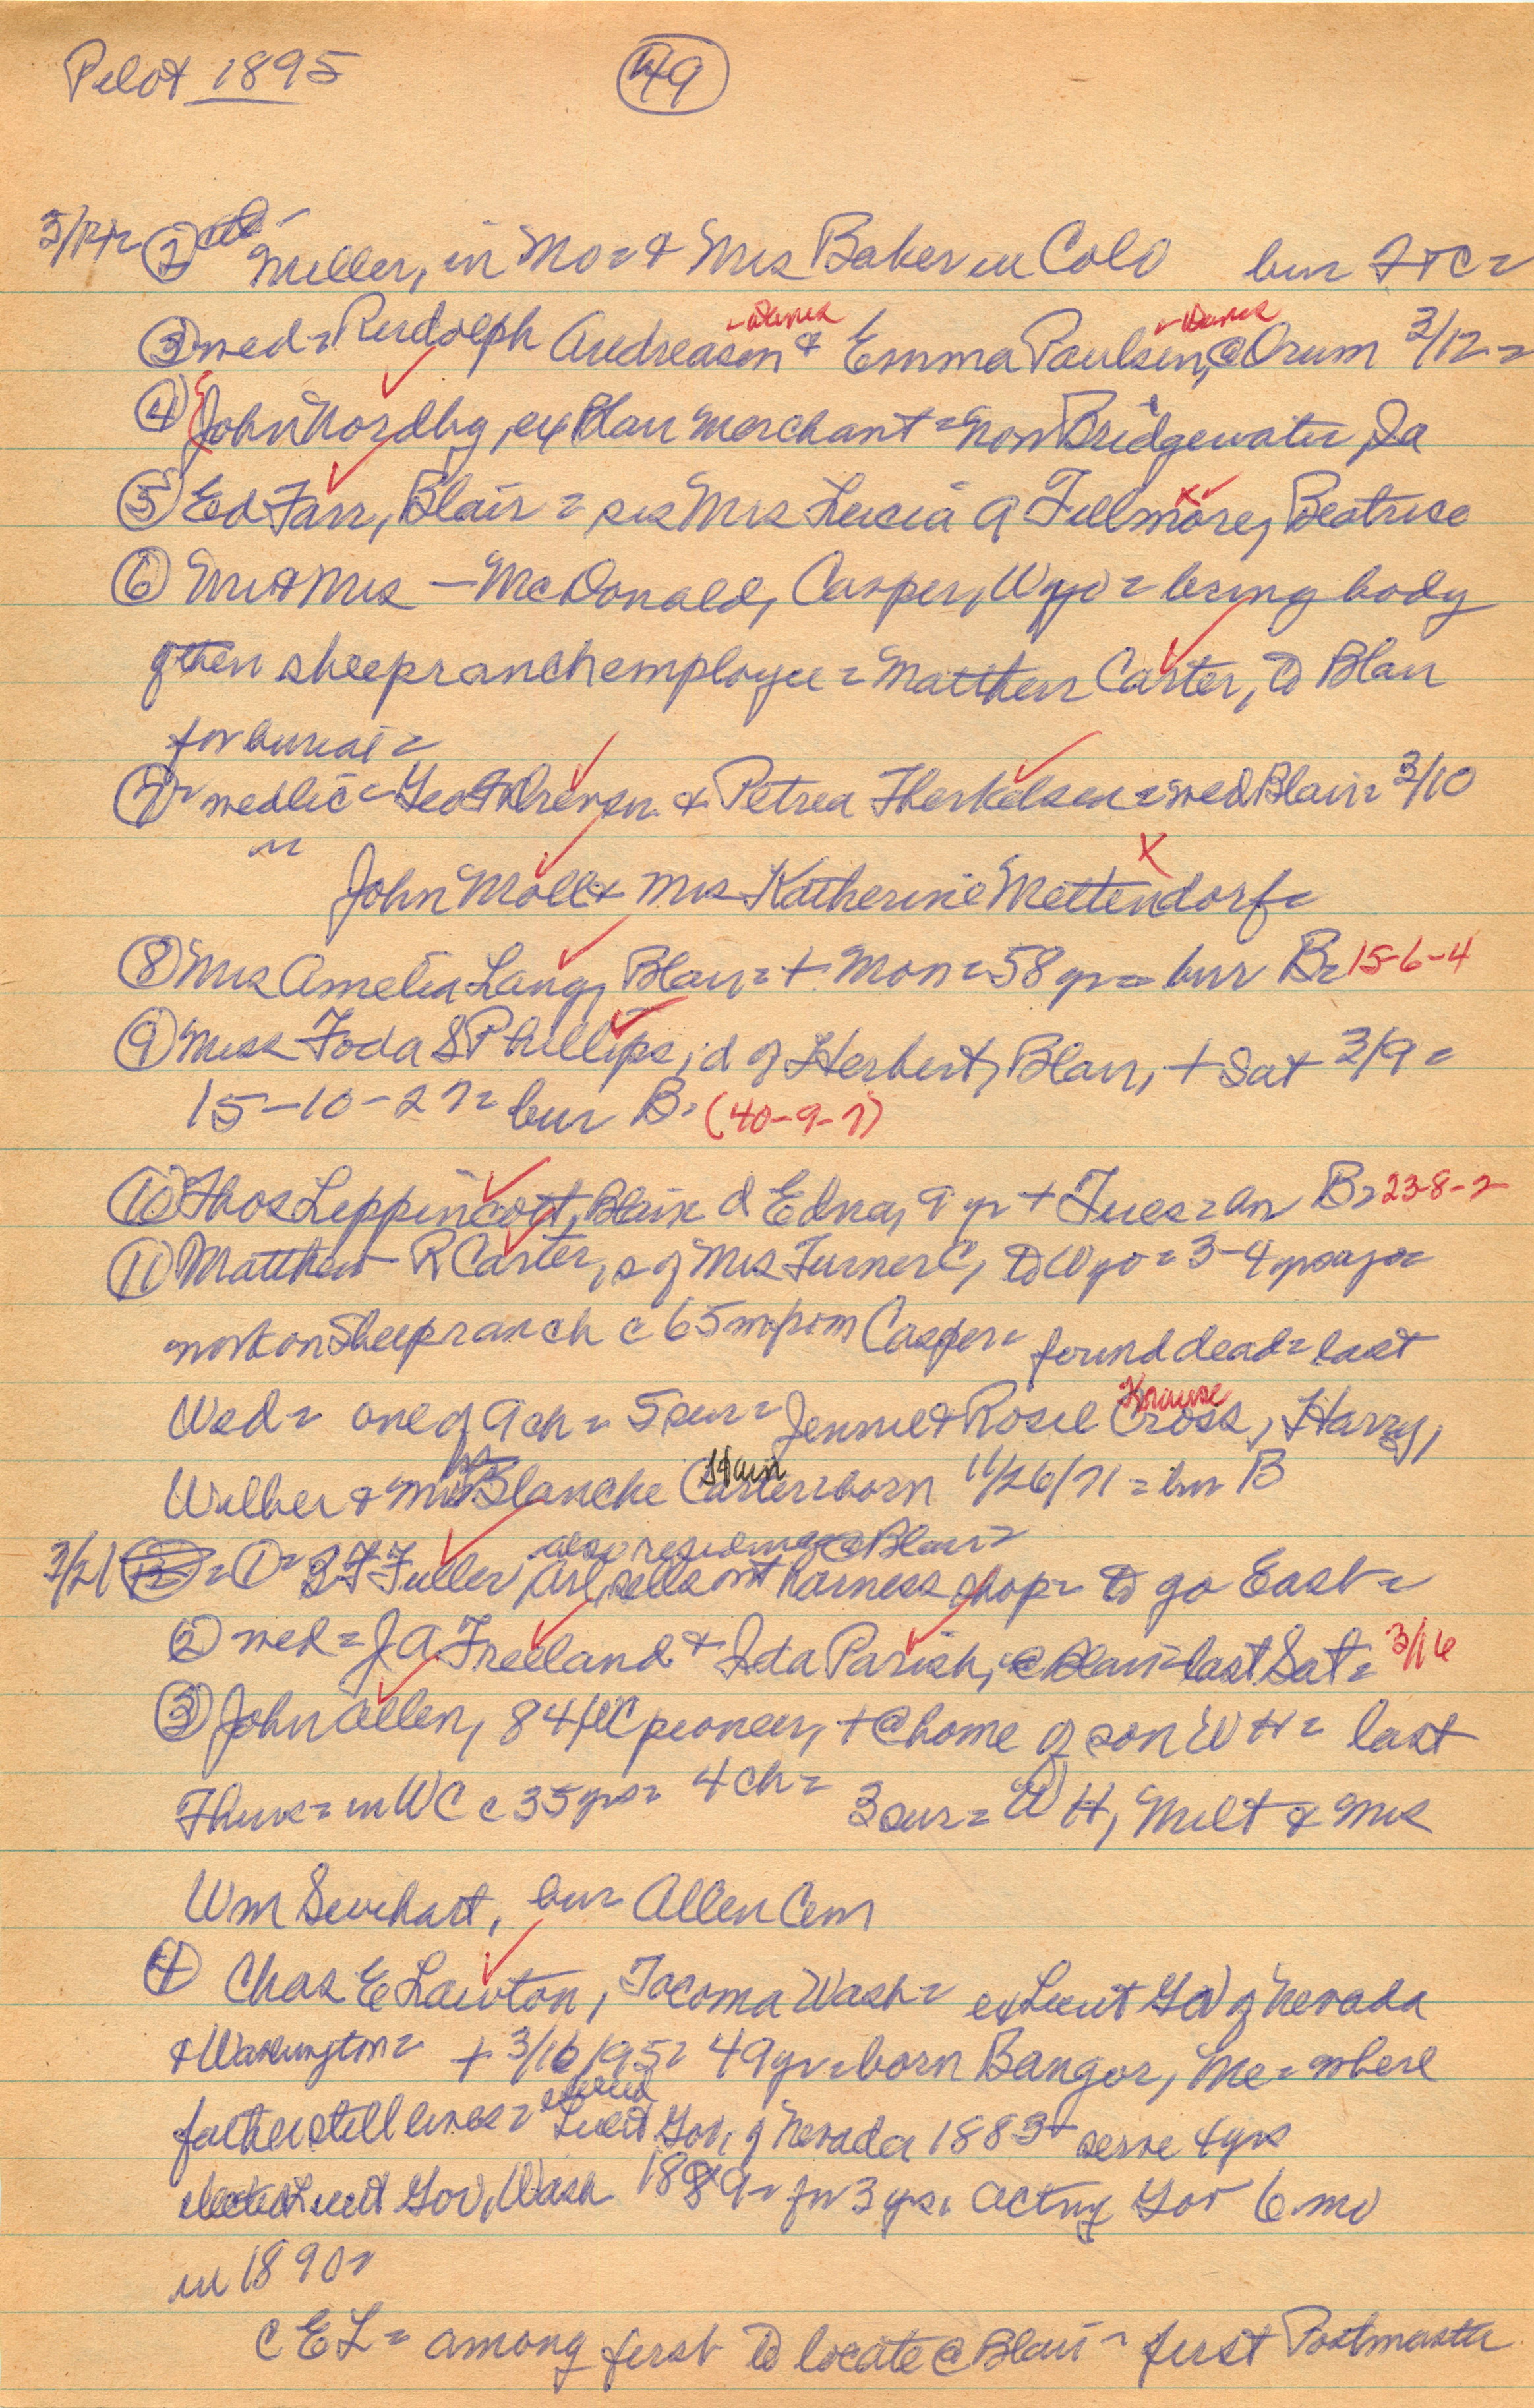 Pilot 1895 49
3/14 = 2 Miller, in Mo = & Mrs Baker in Colo bur F+C =
- Danes - Danes
3 wed = Rudolph Andreason & Emma Paulsen, @ Orum 3/12 =
4 John Nordby, ex Blair merchant = now Bridgewater, Ia
5 Ed Farr, Blair = sis Mrs Lucia A Fillmore, Beatrise
6 Mr & Mrs — McDonald, Casper, Wyo = bring body
of their sheep ranch employee = Matthew Carter, to Blair
for burial =
7 = wed lic = Geo & Petrea Therkelsen = wed Blair = 3/10
" John Moll & Mrs Katherine Mettendorf =
8 Mrs Amelia Lang, Blair = + Mon = 58 yr = bur B = 15-6-4
9 Miss Foda S Phillips, d of Herbert, Blair, + Sat 3/9 =
15-10-27 = bur B. (40-9-7)
10 Thos Lippincott, Blair d Edna, 9 yr + Tues = bur B = 23-8-2
11 Matthew R Carter, s of Mrs Turner C, to Wyo = 3-4 yrs ago =
work on sheep ranch c 65 m from Casper = found dead = last
Krause
Wed = one of 9 ch = 5 sur = Jennie & Rosie Cross, Harry,
Stain
Wilber & Blanche Carter = born 11/26/71 = bur B
also residence @ Blair =
3/21 12 = 1 = B F Fuller, Arl, sells out harness shop = to go East =
2 wed = J A Freeland & Ida Parish, @ Blair = last Sat = 3/16
3 John Allen, 84, WC pioneer, + @ home of son W H = last
Thurs = in WC c 35 yrs = 4 ch = 3 sur = W H, Milt & Mrs
Wm Swihart, bur Allen Cem
4 Chas E Lawton, Tacoma Wash = ex Lieut Gov of Nevada
& Washington = + 3/16/95 = 49 yr = born Bangor, Me = where
father still lives = elected
Lieut Gov, of Nevada 1883 + serve 4 yrs
elected Lieut Gov, Wash 1889 = for 3 yrs. acting Gov 6 mo
in 1890 =
C E L = among first to locate @ Blair = first Postmaster